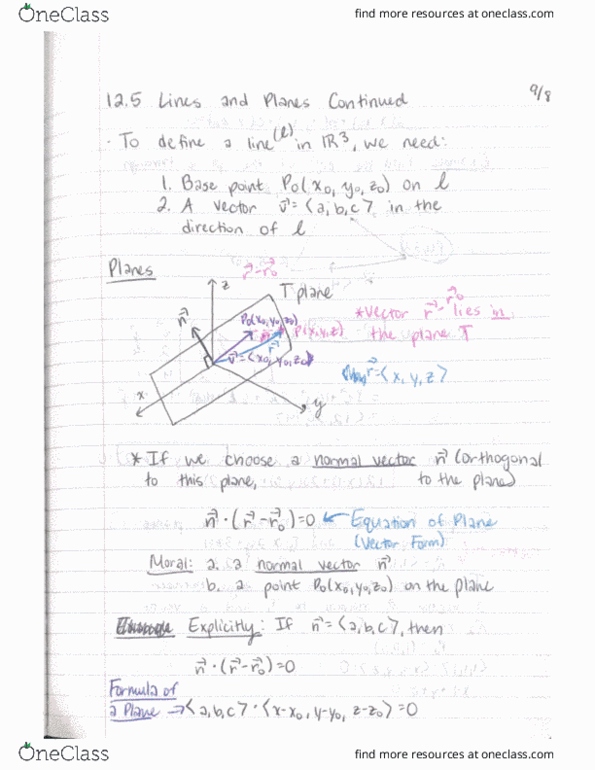 OneClass
find more resources at oneclass.com
9/8
12.5 Lines and Planes Continued
· To define a line (l) in ℝ³, we need:
1. Base point P₀(x₀, y₀, z₀) on l
2. A vector v⃗ = ⟨a, b, c⟩ in the
direction of l
Planes
r⃗-r₀⃗
z
T plane
n⃗
P₀(x₀,y₀,z₀)
P(x,y,z)
*Vector r⃗-r₀⃗ lies in
the plane T
r⃗
v⃗=⟨x₀, y₀, z₀⟩
r⃗=⟨x, y, z⟩
x
y
* If we choose a normal vector n⃗ (orthogonal
to this plane, to the plane)
n⃗·(r⃗-r₀⃗)=0 ← Equation of Plane
(Vector Form)
Moral: a. a normal vector n⃗
b. a point P₀(x₀,y₀,z₀) on the plane
Explicitly: If n⃗=⟨a,b,c⟩, then
n⃗·(r⃗-r₀⃗)=0
Formula of
a Plane → ⟨a,b,c⟩·⟨x-x₀, y-y₀, z-z₀⟩=0
OneClass
find more resources at oneclass.com